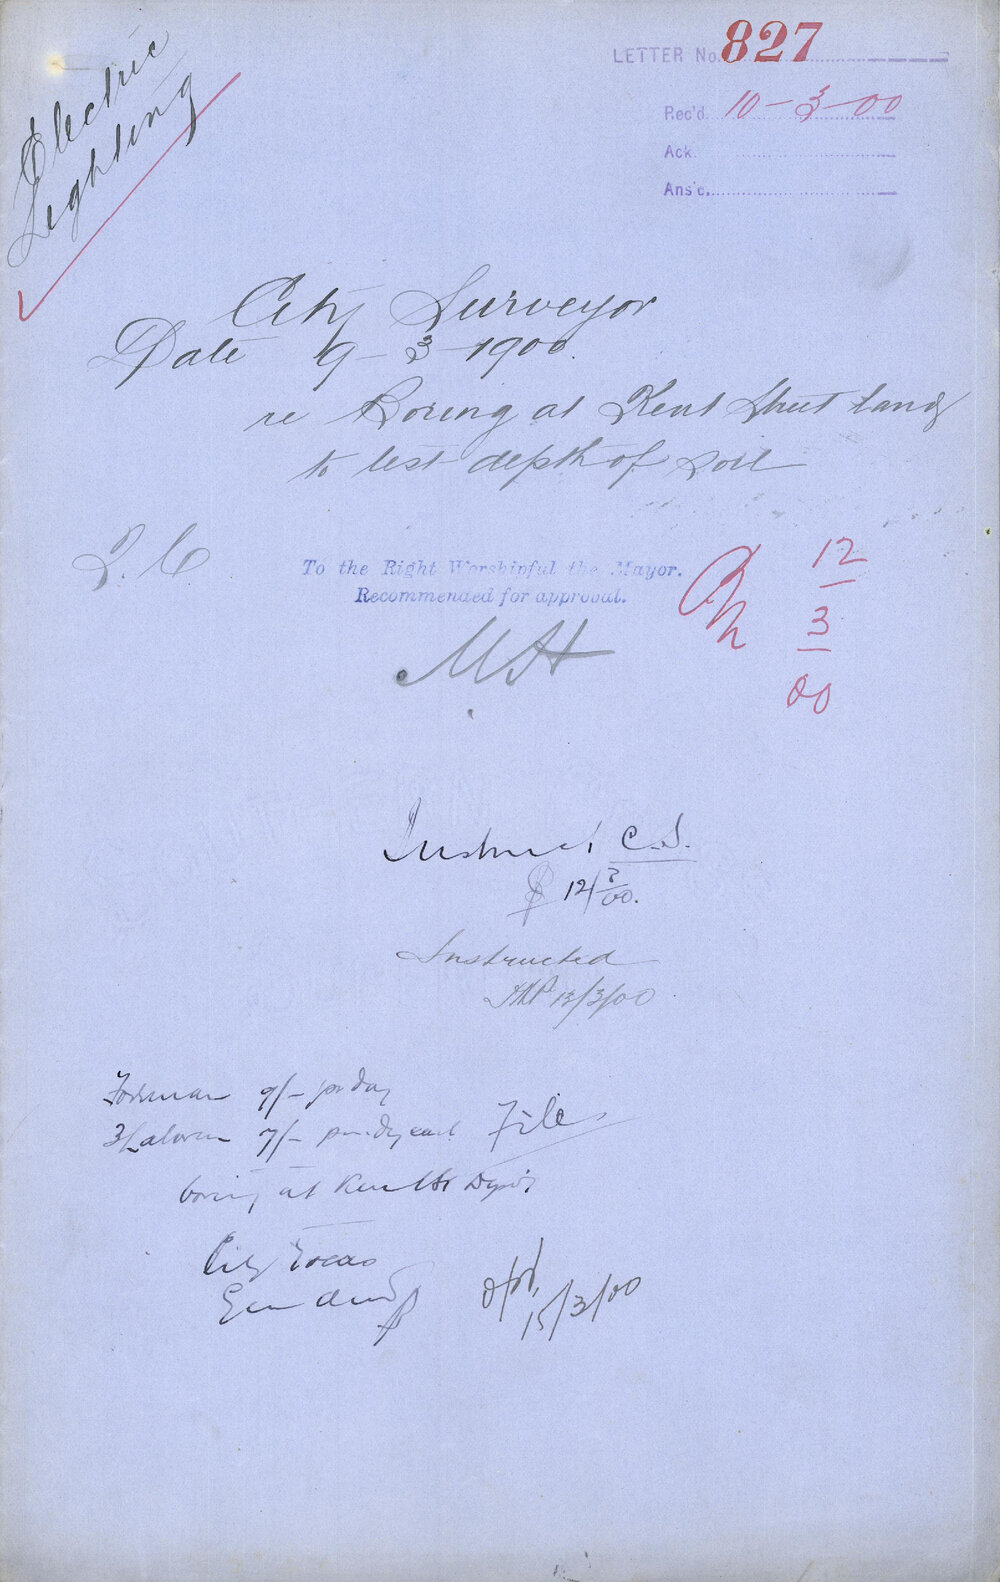 Electric
Lighting
LETTER No. 827
Rec'd. 10-3-00
Ack.
Ans'd.
City Surveyor
Date 9-3-1900.
re Boring at Kent Street land
to test depth of soil
T.C
To the Right Worshipful the Mayor.
Recommended for approval.
12
3
00
Instruct C.S.
12/3/00.
Instructed
13/3/00
Foreman 9/- per day
3 Laborers 7/- per day each
File
boring at Kent St
City
15/3/00